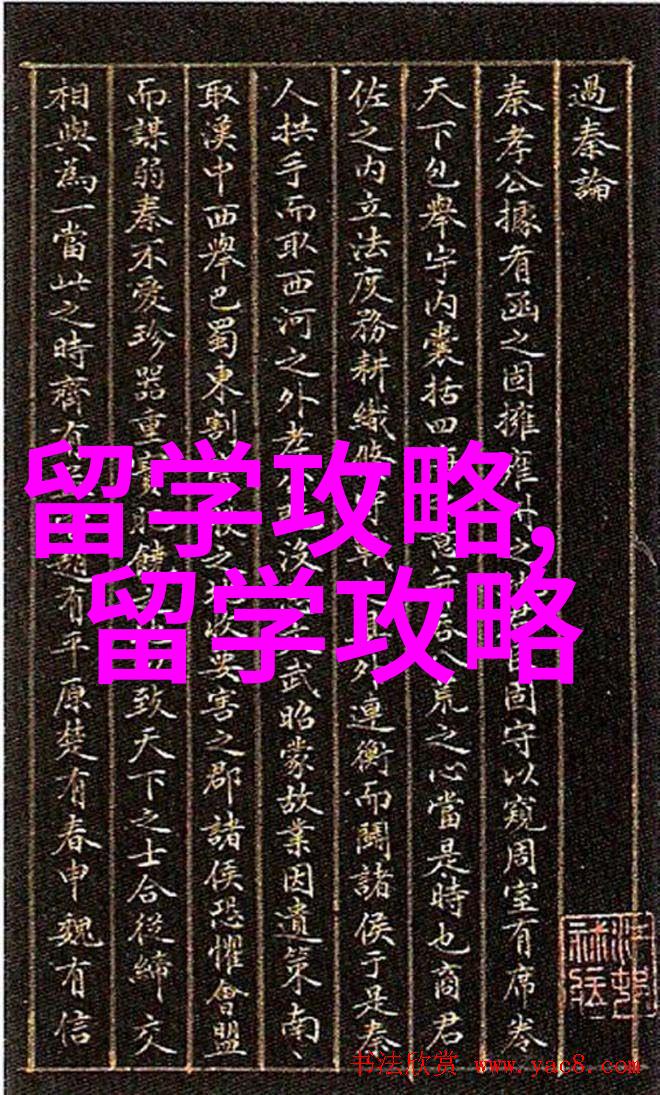 過秦論
秦孝公據肴函之固擁雍州之固守以窺周室有席卷
天下包舉宇内囊括四荒之心當是時也商君
佐之内立法度務耕織修守戰外連衡而鬪諸侯于是秦
人拱手而取西河之外孝公既沒武昭蒙故業因遺策南、
取漢中西舉巴蜀東割之收要害之郡諸侯恐懼會盟
而謀弱秦不愛珍器重寶致天下之士合從締交
相與為一當此之時齊有趙有平原楚有春申魏有信
留学攻略,
留学攻略
书法欣赏 www.yac8.com